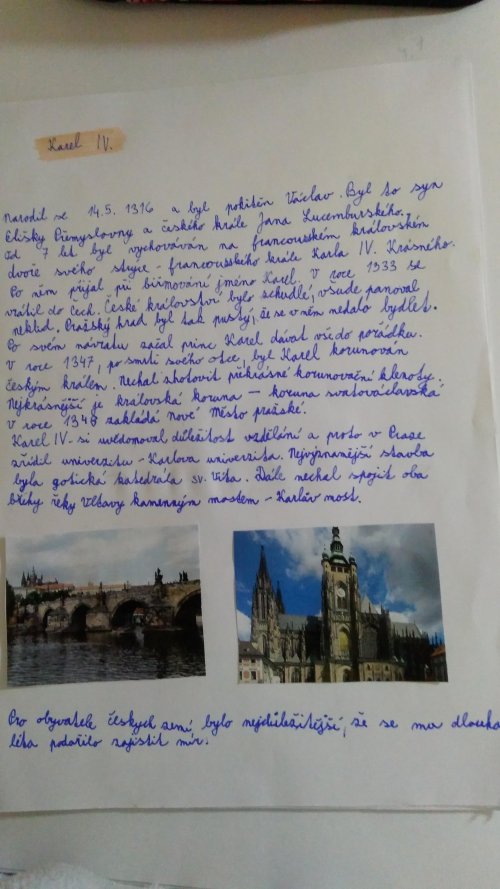 Karel IV.
Narodil se 14.5. 1316 a byl pokřtěn Václav. Byl to syn
Elišky Přemyslovny a českého krále Jana Lucemburského.
Od 7 let byl vychováván na francouzském královském
dvoře svého strýce - francouzského krále Karla IV. Krásného.
Po něm přijal při biřmování jméno Karel. V roce 1333 se
vrátil do Čech. České království bylo zchudlé, všude panoval
neklid. Pražský hrad byl tak pustý, že se v něm nedalo bydlet.
Po svém návratu začal princ Karel dávat vše do pořádku.
V roce 1347, po smrti svého otce, byl Karel korunován
českým králem. Nechal zhotovit překrásné korunovační klenoty.
Nejkrásnější je královská koruna - koruna svatováclavská
V roce 1348 zakládá nové Město pražské.
Karel IV. si uvědomoval důležitost vzdělání a proto v Praze
zřídil univerzitu - Karlova univerzita. Nejvýznamější stavba
byla gotická katedrála sv. Víta. Dále nechal spojit oba
břehy řeky Vltavy kamenným mostem - Karlův most.
Pro obyvatele českých zemí bylo nejdůležitější, že se mu dlouhá
léta podařilo zajistit mír.